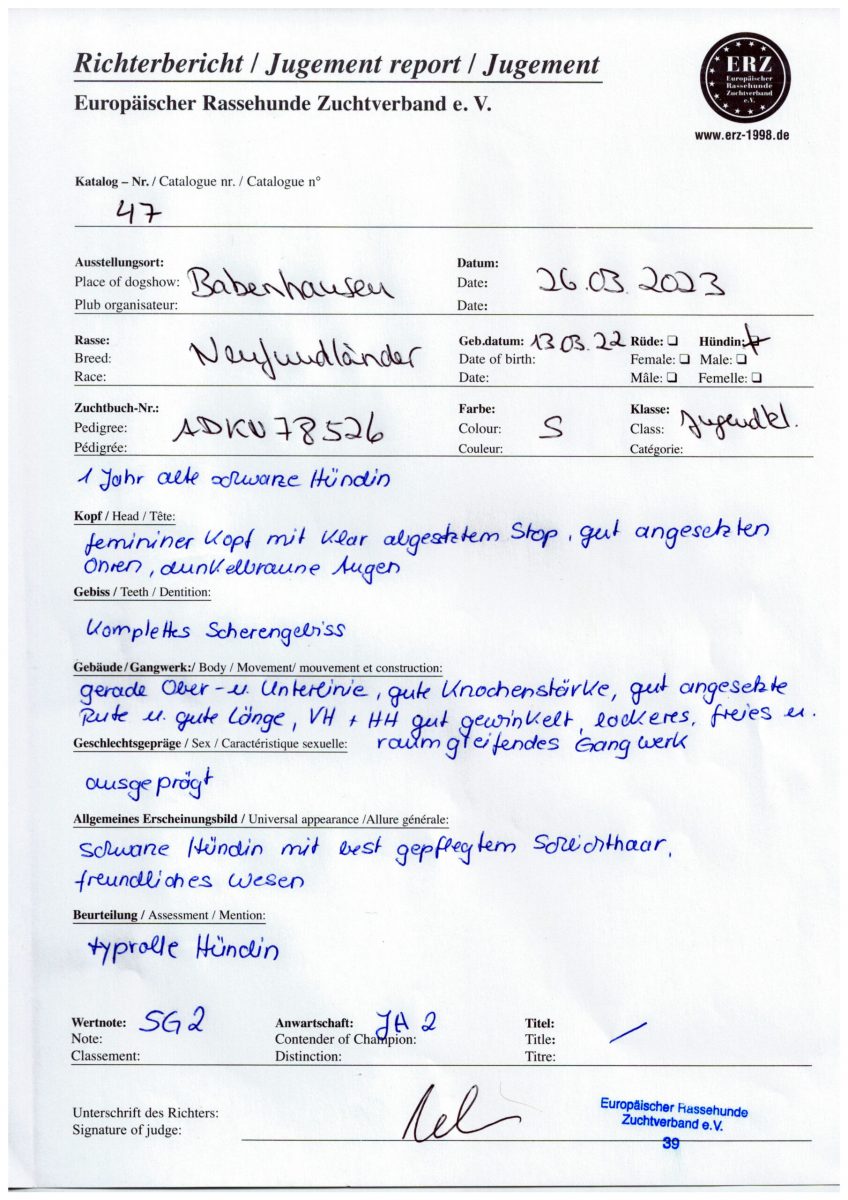 Richterbericht / Jugement report / Jugement
Europäischer Rassehunde Zuchtverband e. V.
ERZ
Europäischer
Rassehunde
Zuchtverband
e.V.
www.erz-1998.de
Katalog – Nr. / Catalogue nr. / Catalogue n°
47
Ausstellungsort:
Place of dogshow: Babenhausen
Plub organisateur:
Datum:
Date: 26.03.2023
Date:
Rasse:
Breed: Neufundländer
Race:
Geb.datum: 13.03.22 Rüde: Hündin:
Date of birth: Female: Male:
Date: Mâle: Femelle:
Zuchtbuch-Nr.:
Pedigree: ADKU 78526
Pédigrée:
Farbe:
Colour: S
Couleur:
Klasse:
Class: Jugendkl.
Catégorie:
1 Jahr alte schwarze Hündin
Kopf / Head / Tête:
femininer Kopf mit klar abgesetztem Stop, gut angesetzten
Ohren, dunkelbraune Augen
Gebiss / Teeth / Dentition:
Komplettes Scherengebiss
Gebäude / Gangwerk:/ Body / Movement/ mouvement et construction:
gerade Ober- u. Unterlinie, gute Knochenstärke, gut angesetzte
Rute u. gute Länge, VH + HH gut gewinkelt, lockeres, freies u.
Geschlechtsgepräge / Sex / Caractéristique sexuelle: raumgreifendes Gangwerk
ausgeprägt
Allgemeines Erscheinungsbild / Universal appearance /Allure générale:
schwarze Hündin mit best gepflegtem Schlichthaar,
freundliches Wesen
Beurteilung / Assessment / Mention:
typvolle Hündin
Wertnote: SG2
Note:
Classement:
Anwartschaft: JA 2
Contender of Champion:
Distinction:
Titel:
Title:
Titre:
Unterschrift des Richters:
Signature of judge:
Europäischer Rassehunde
Zuchtverband e.V.
39